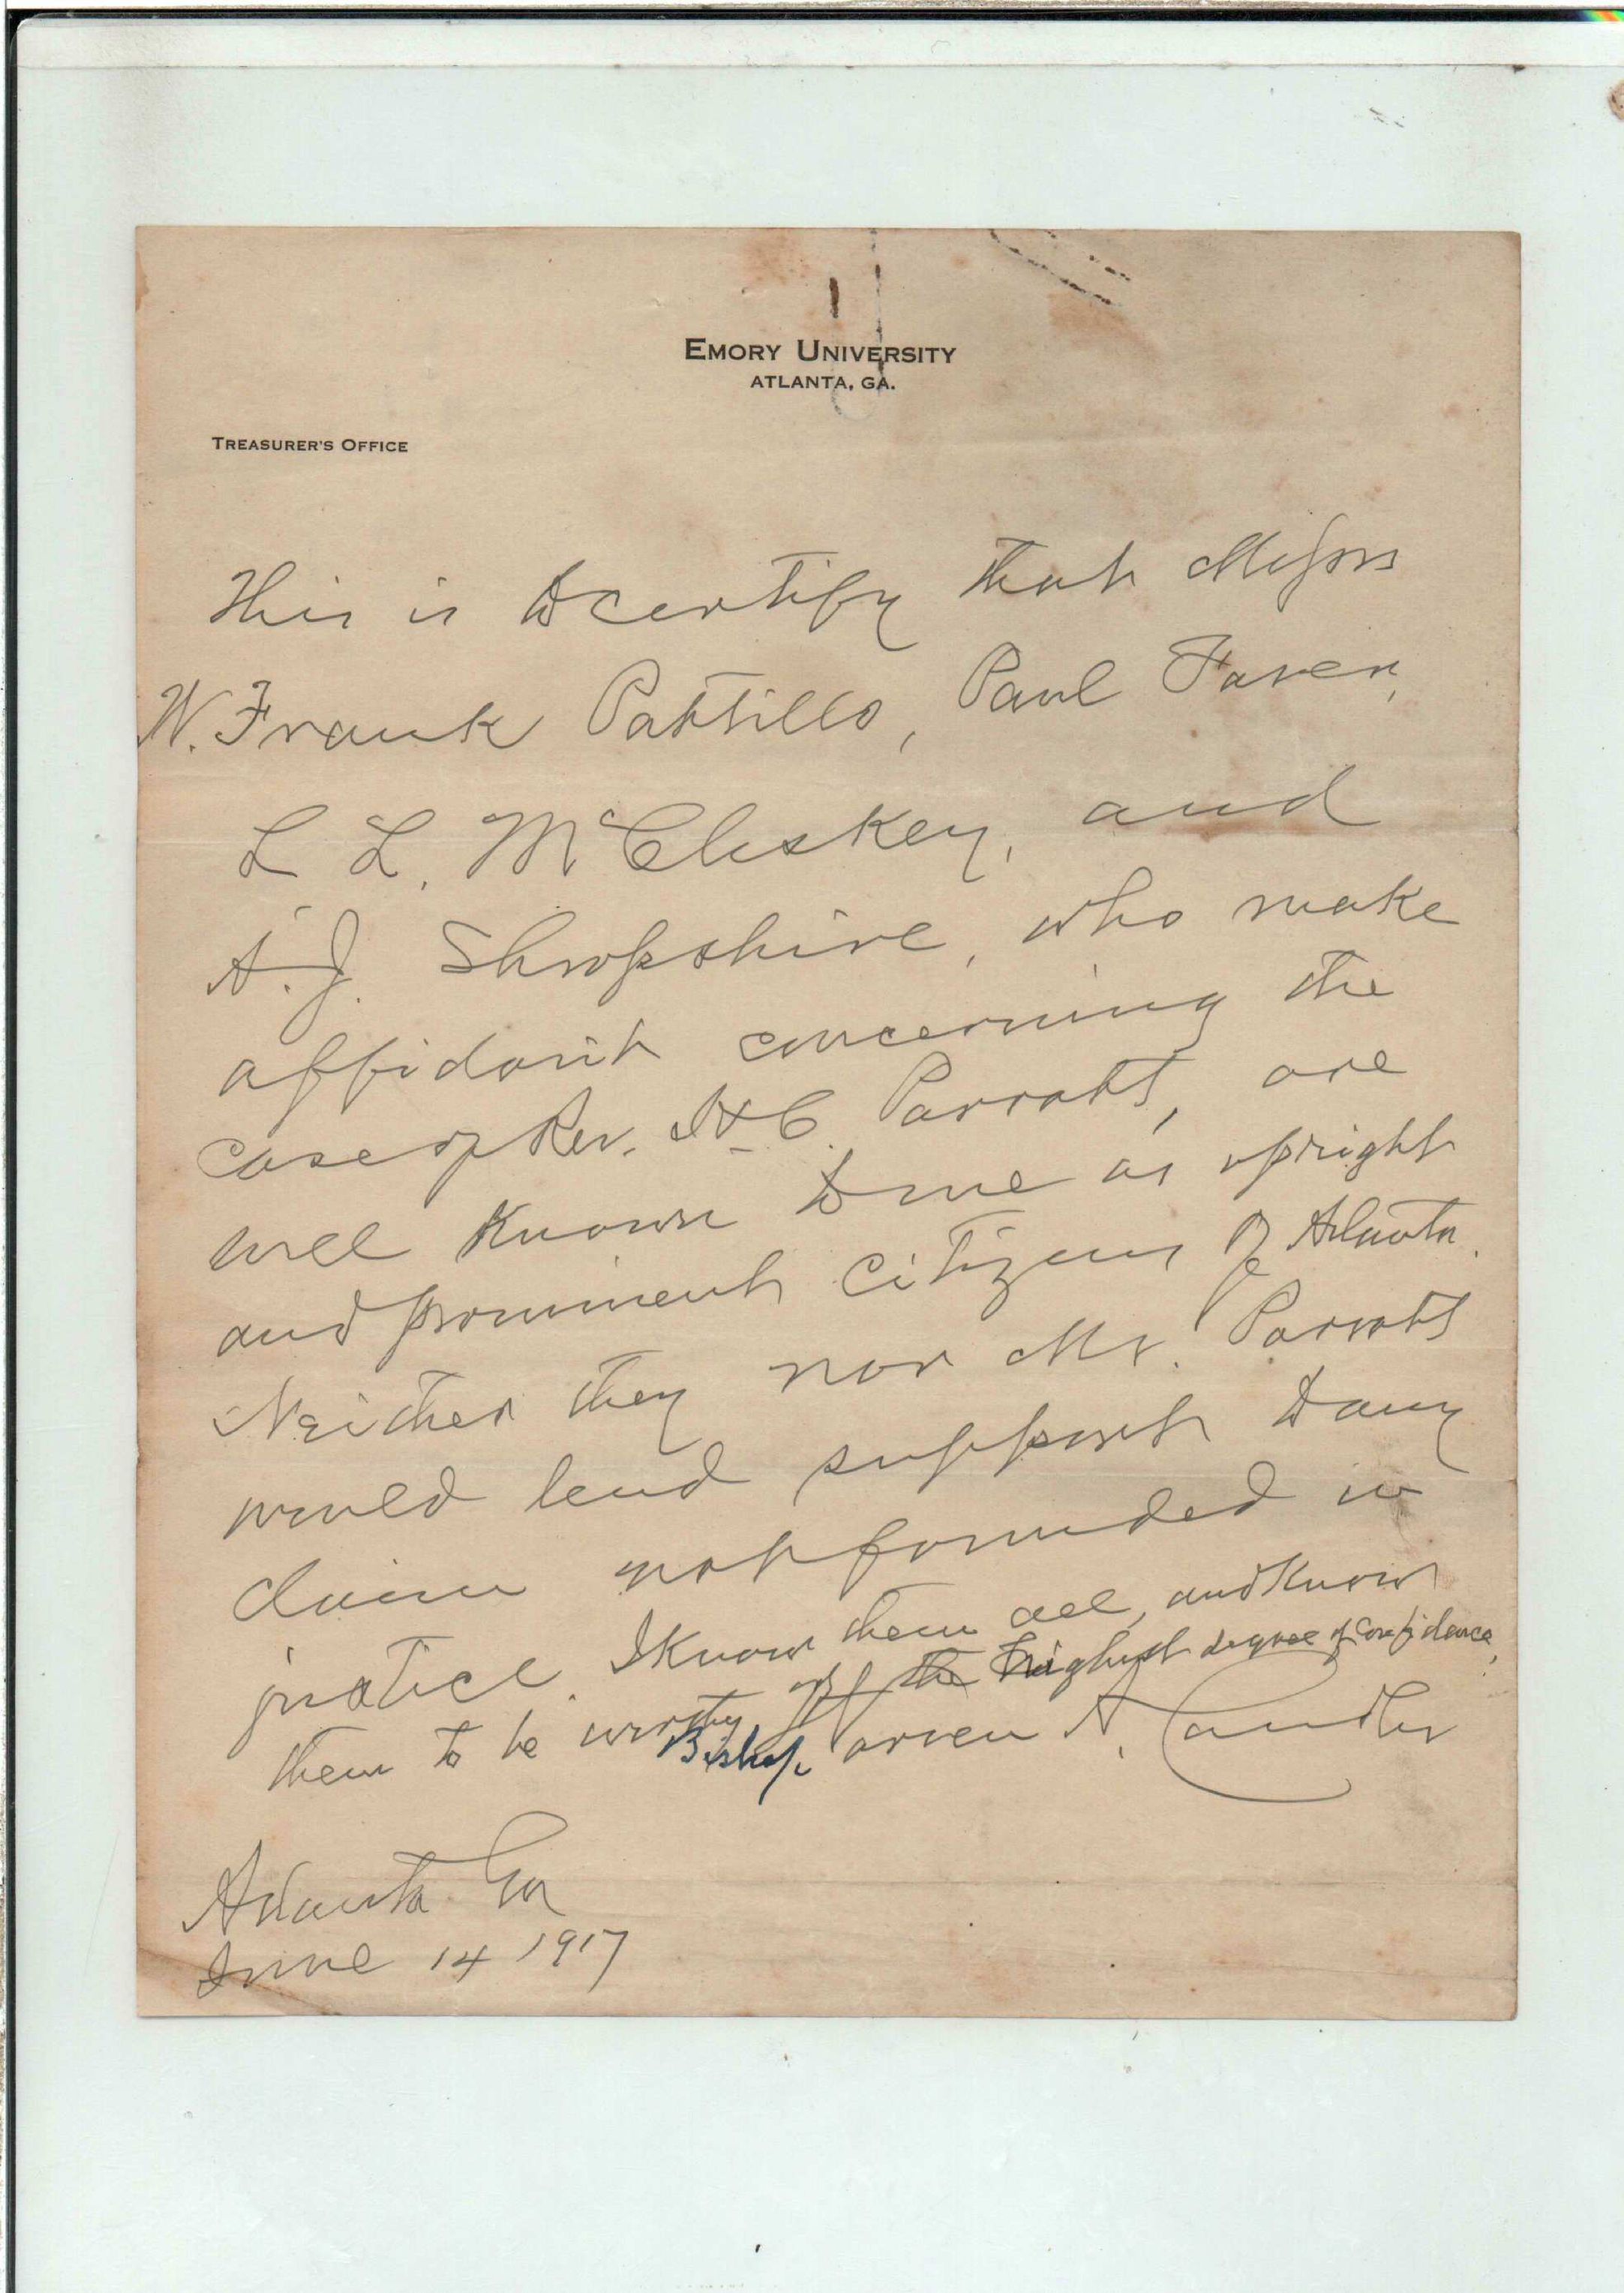 EMORY UNIVERSITY
ATLANTA, GA.
TREASURER'S OFFICE
This is to certify that Messrs
W. Frank Pattillo, Paul
L L. McCluskey, and
A. J. Shropshire, who make
affidavit concerning the
case of Rev. H C. Parrott, are
well known to me as upright
and prominent citizens of Atlanta.
Neither they nor Mr. Parrott
would lend support to any
claim not founded in
justice. I know them all, and know
them to be worthy of the highest degree of confidence,
Bishop Warren A. Candler
Atlanta Ga
June 14 1917